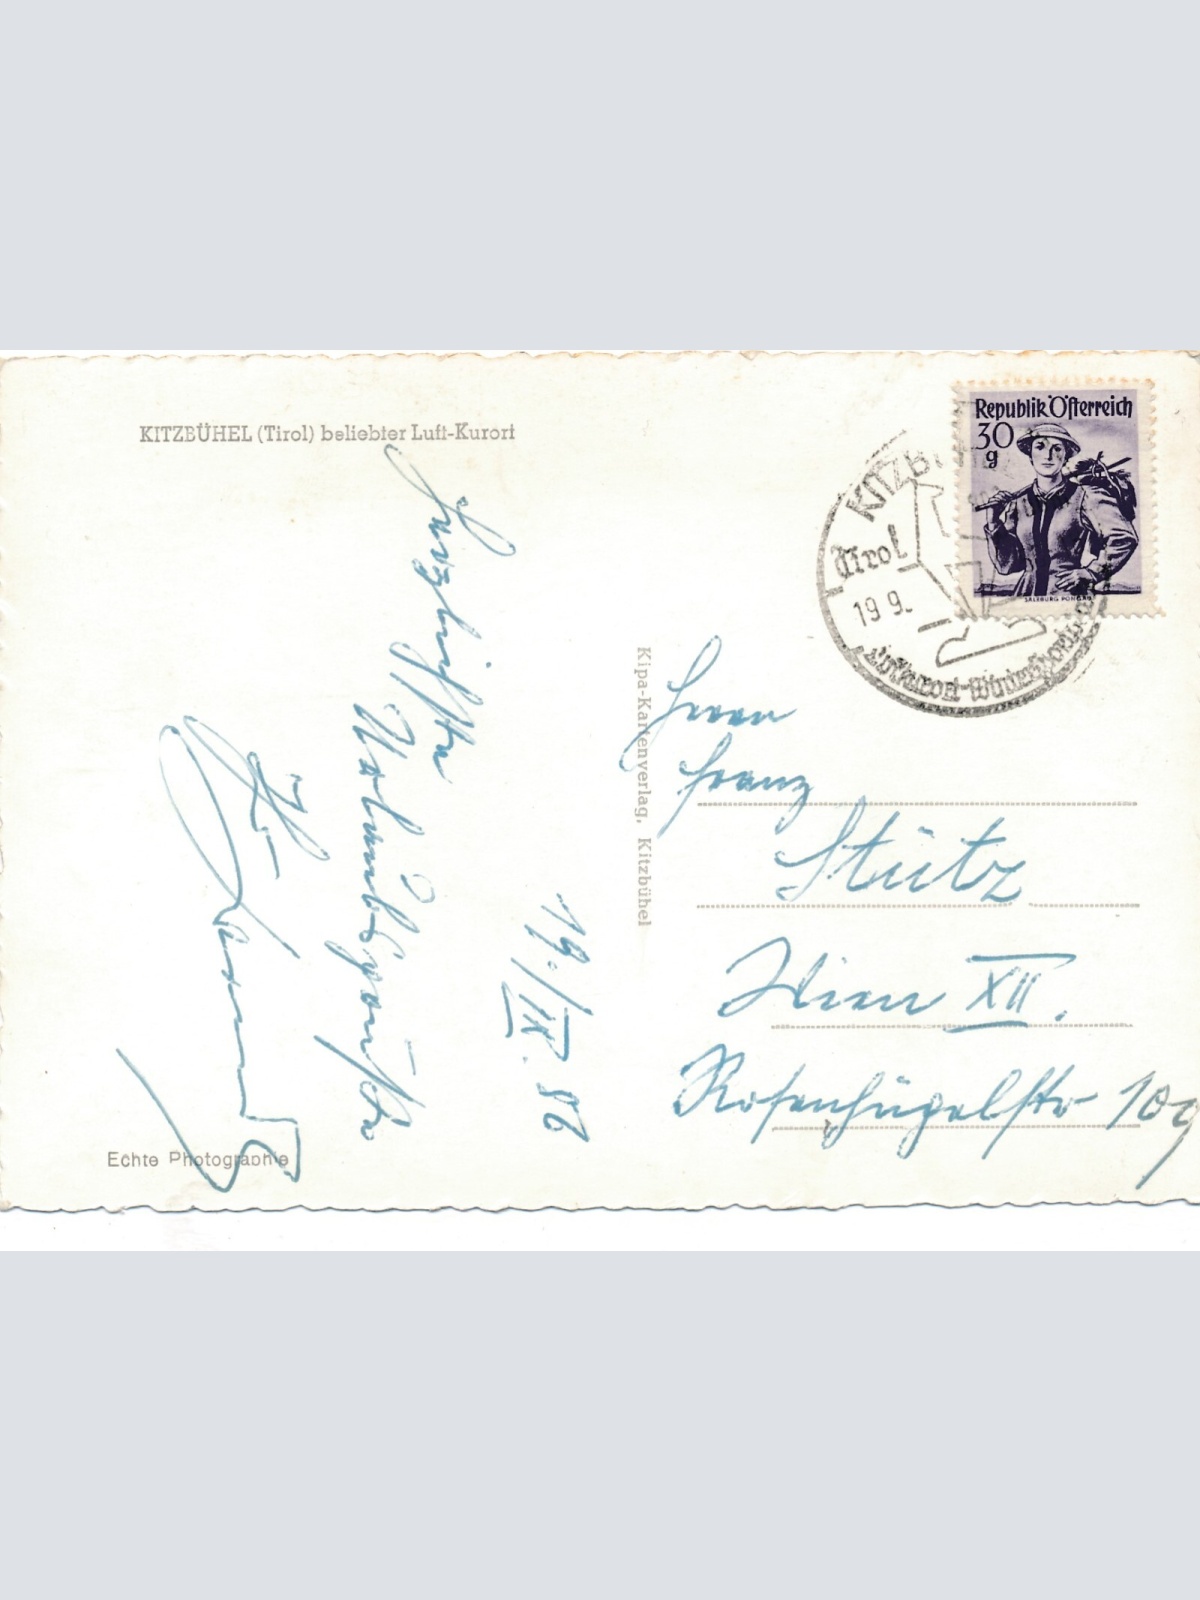 KITZBÜHEL (Tirol) beliebter Luft-Kurort
Republik Österreich
30
g
SALZBURG PONGAU
KITZB
Tirol
19 9.
Luftkurort-Wintersport
Herzlichste
Urlaubsgrüße
Ihr
19./IX. 56
Kipa-Kartenverlag, Kitzbühel
Herrn
Franz
Stütz
Wien XII.
Rosenhügelstr 109
Echte Photographie